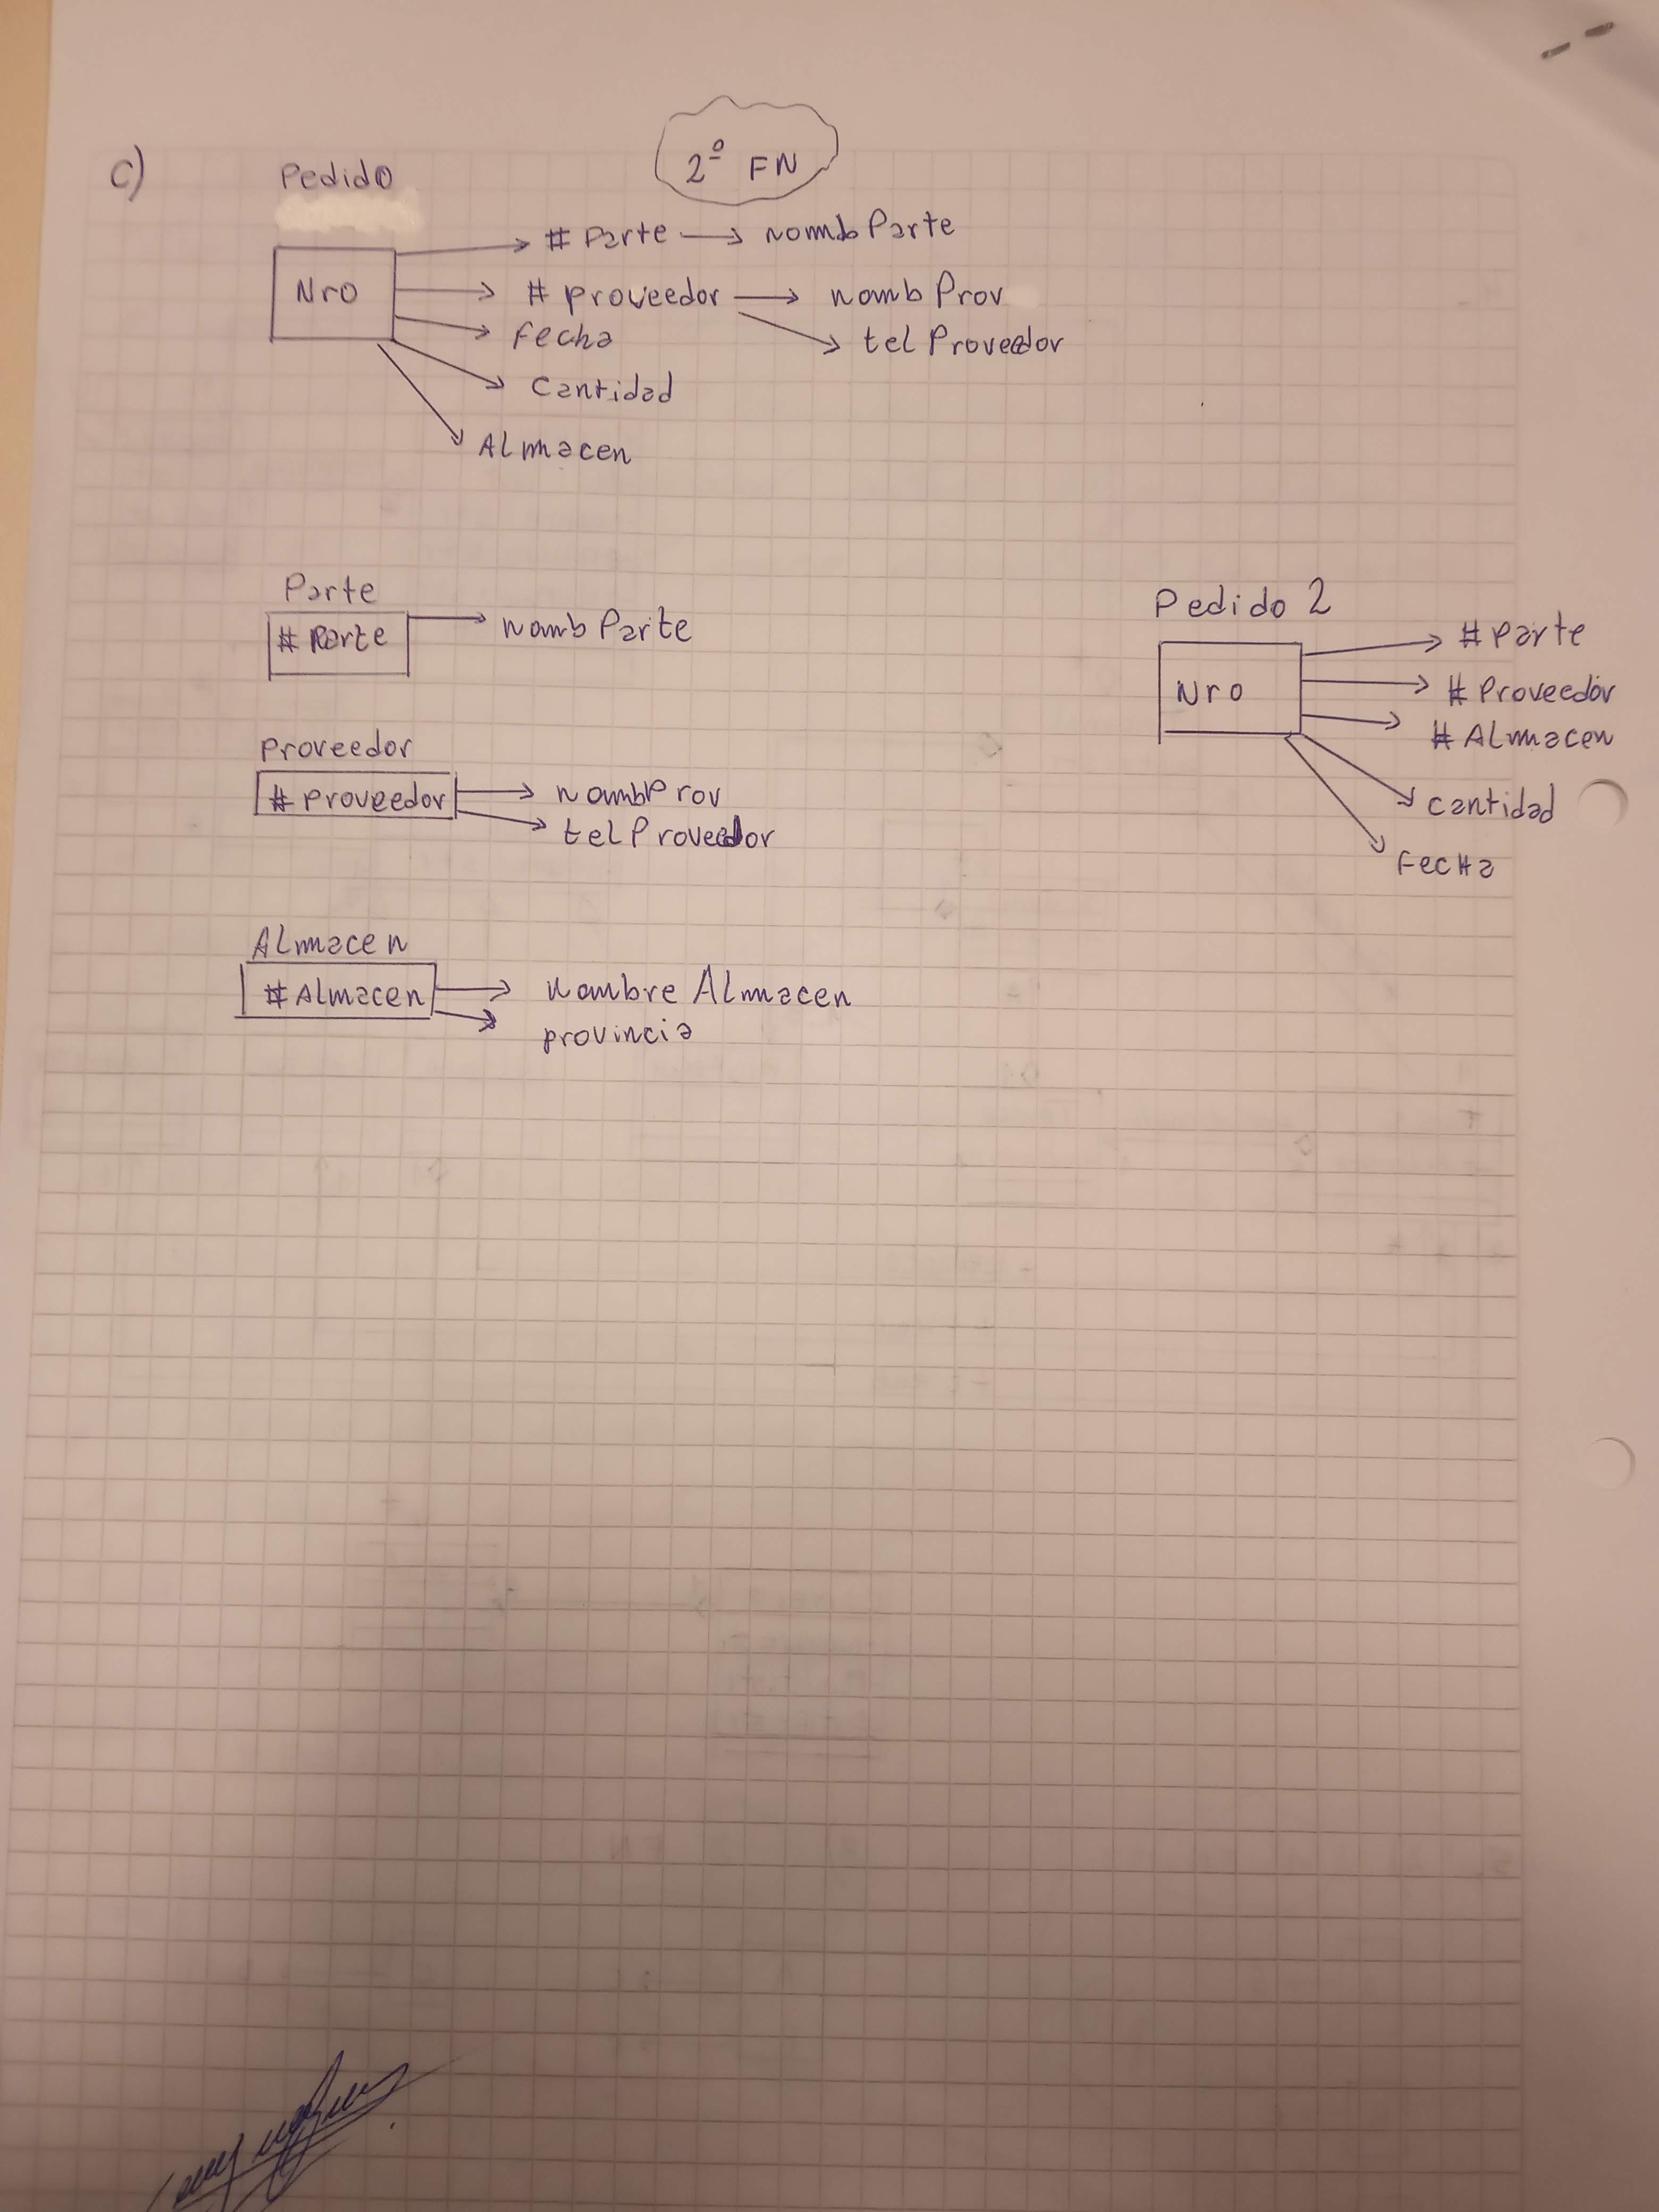 c)
Pedido
2º FN
Nro
# Parte → nombParte
# proveedor → nombProv
Fecha
telProveedor
Cantidad
Almacen
Parte
# Parte → nombParte
Proveedor
# proveedor → nombProv
telProveedor
Almacen
# Almacen → nombre Almacen
provincia
Pedido 2
Nro
# Parte
# Proveedor
# Almacen
cantidad
Fecha